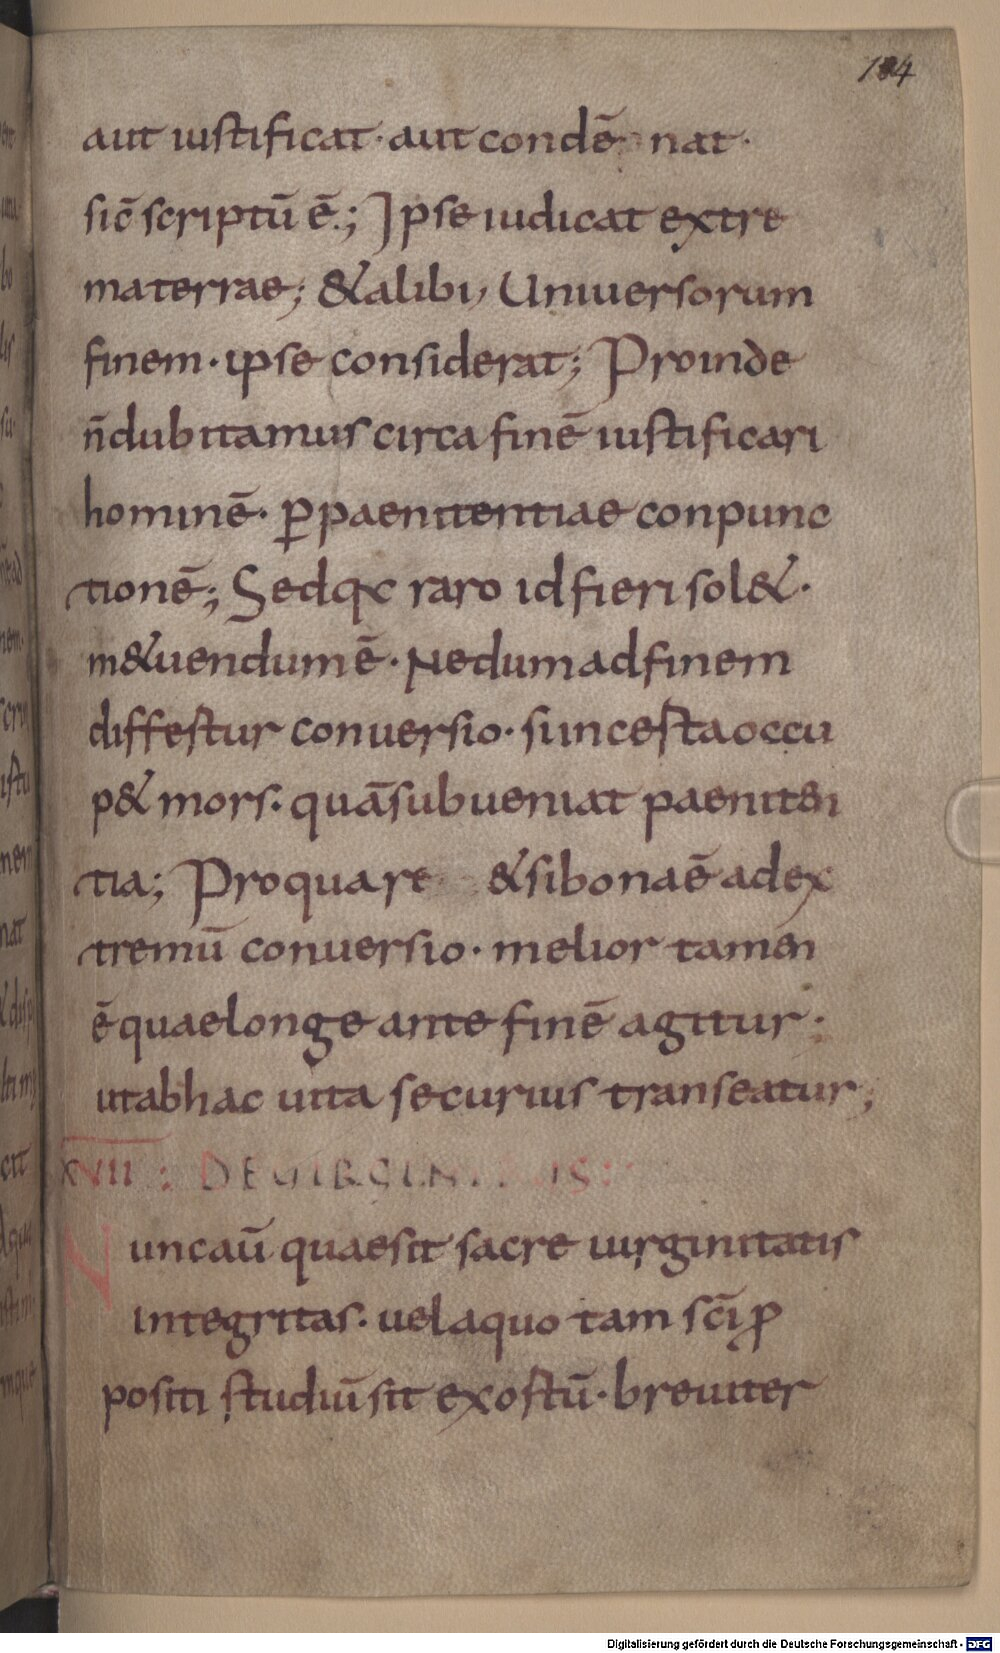 184
aut iustificat· aut condē nat·
sic̄ scriptū ē·; Ipse iudicat extre
materrae; & alibi, Uniuersorum
finem· ipse considerat; Proinde
n̄ dubitamus circa finē iustificari
hominē· ꝑ paenitentiae conpunc
tionē; Sed qx raro id fieri sol&·
m&uendum ē· Nedum ad finem
differtur conuersio· sui incesta occu
p& mors· quā subueniat paeniten
tia; Proquare & si bona ē ad ex
tremū conuersio· melior tamen
ē quae longe ante finē agitur·
ut ab hac uita securius transeatur;
XVII: DE UIRGINI IS:
uncaū quae sit sacre uirginitatis
integritas· uel a quo tam sc̄i ꝓ
positi studiū sit exostū· breuiter
Digitalisierung gefördert durch die Deutsche Forschungsgemeinschaft - DFG